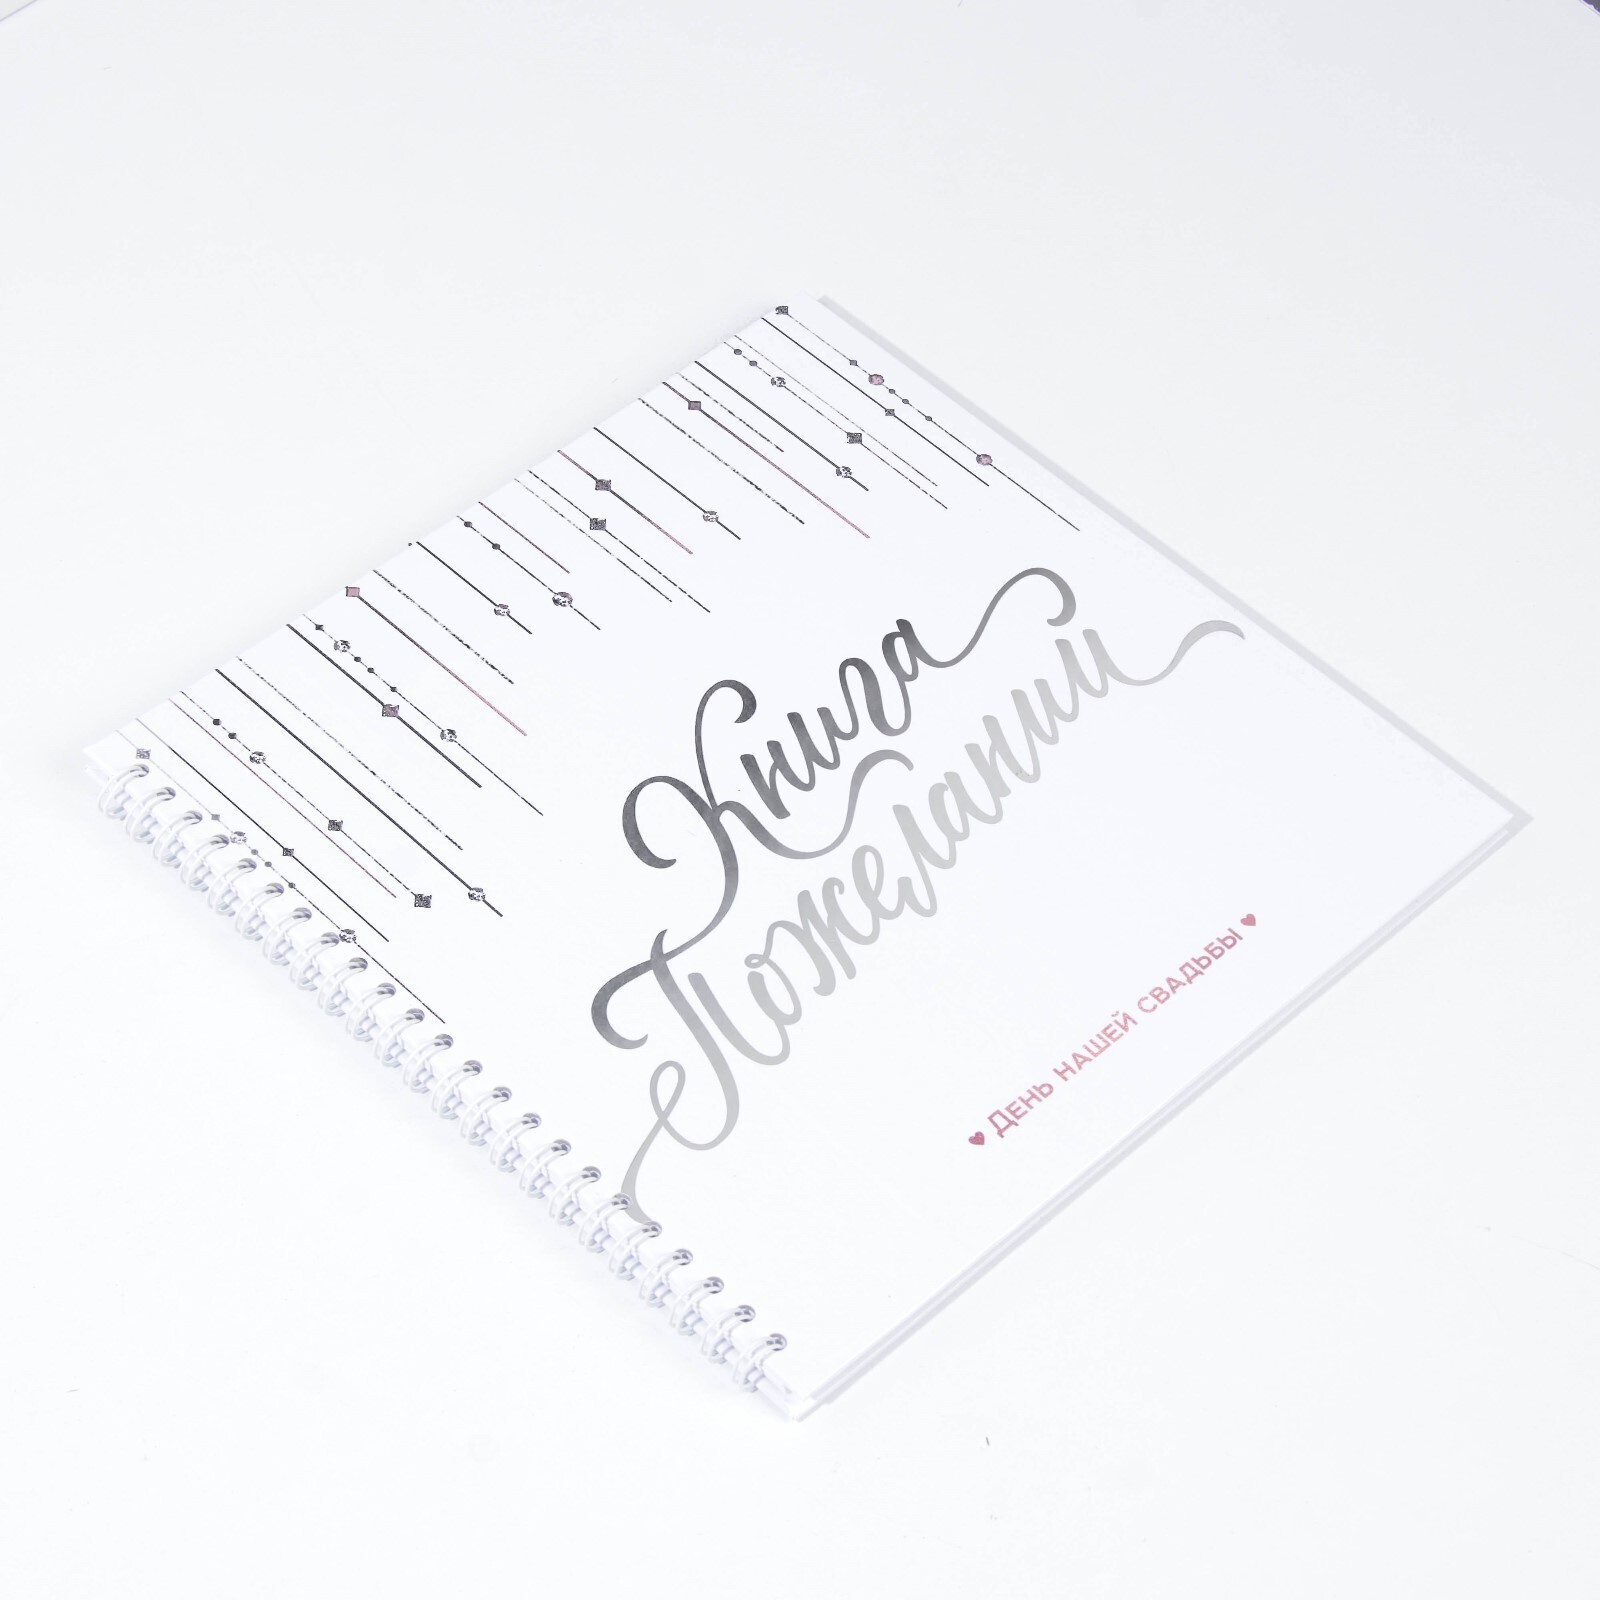 Книга
Пожеланий
♥ ДЕНЬ НАШЕЙ СВАДЬБЫ ♥